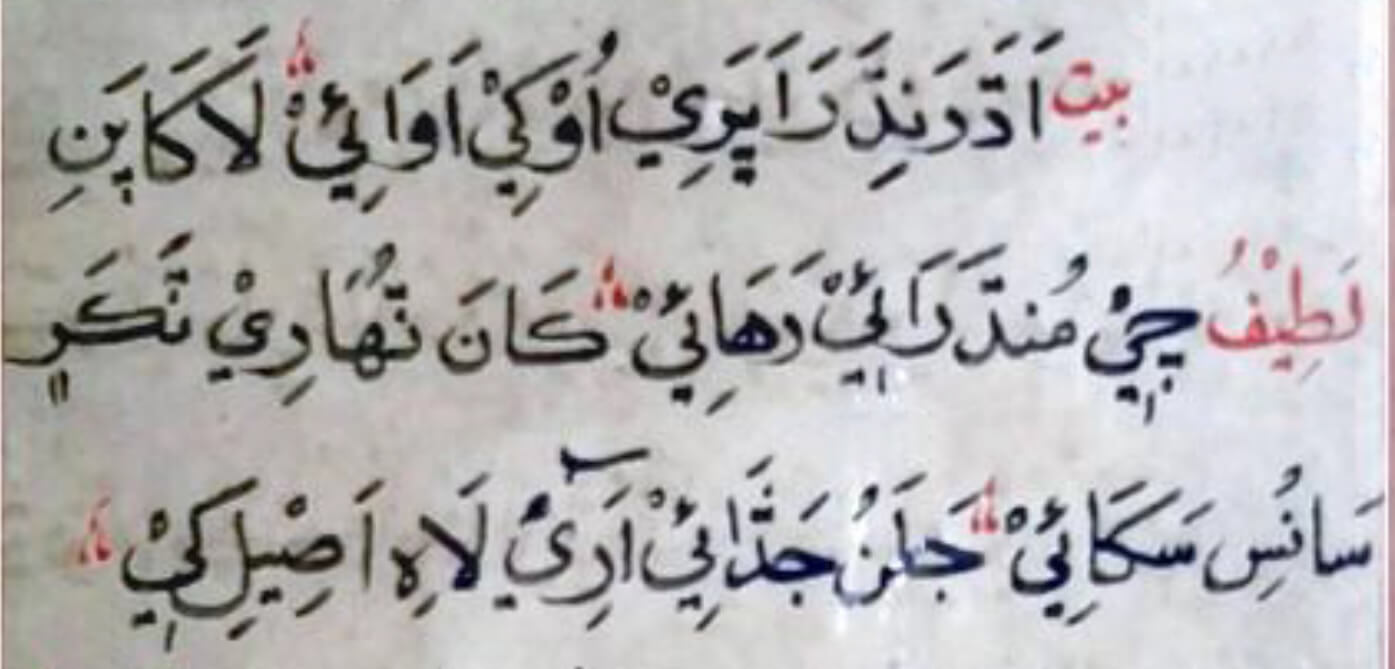 بيت اَدَّرَنِدَّرَا پَرِيْ اُوْكِيْ اَوَائِيْ؞ لَاكَاپَنِ
لَطِيْفُ چِيْ مُندَّرَائِيْ دَهَائِيْ؞ كَانَ نَّهَارِيْ نَّكَرٍ
سَانُسِ سَكَائِيْ؞ جَلَنُ جَدَّائِيْ آرِيْ لَاهِ اَصِيْلِ كِيْ؞